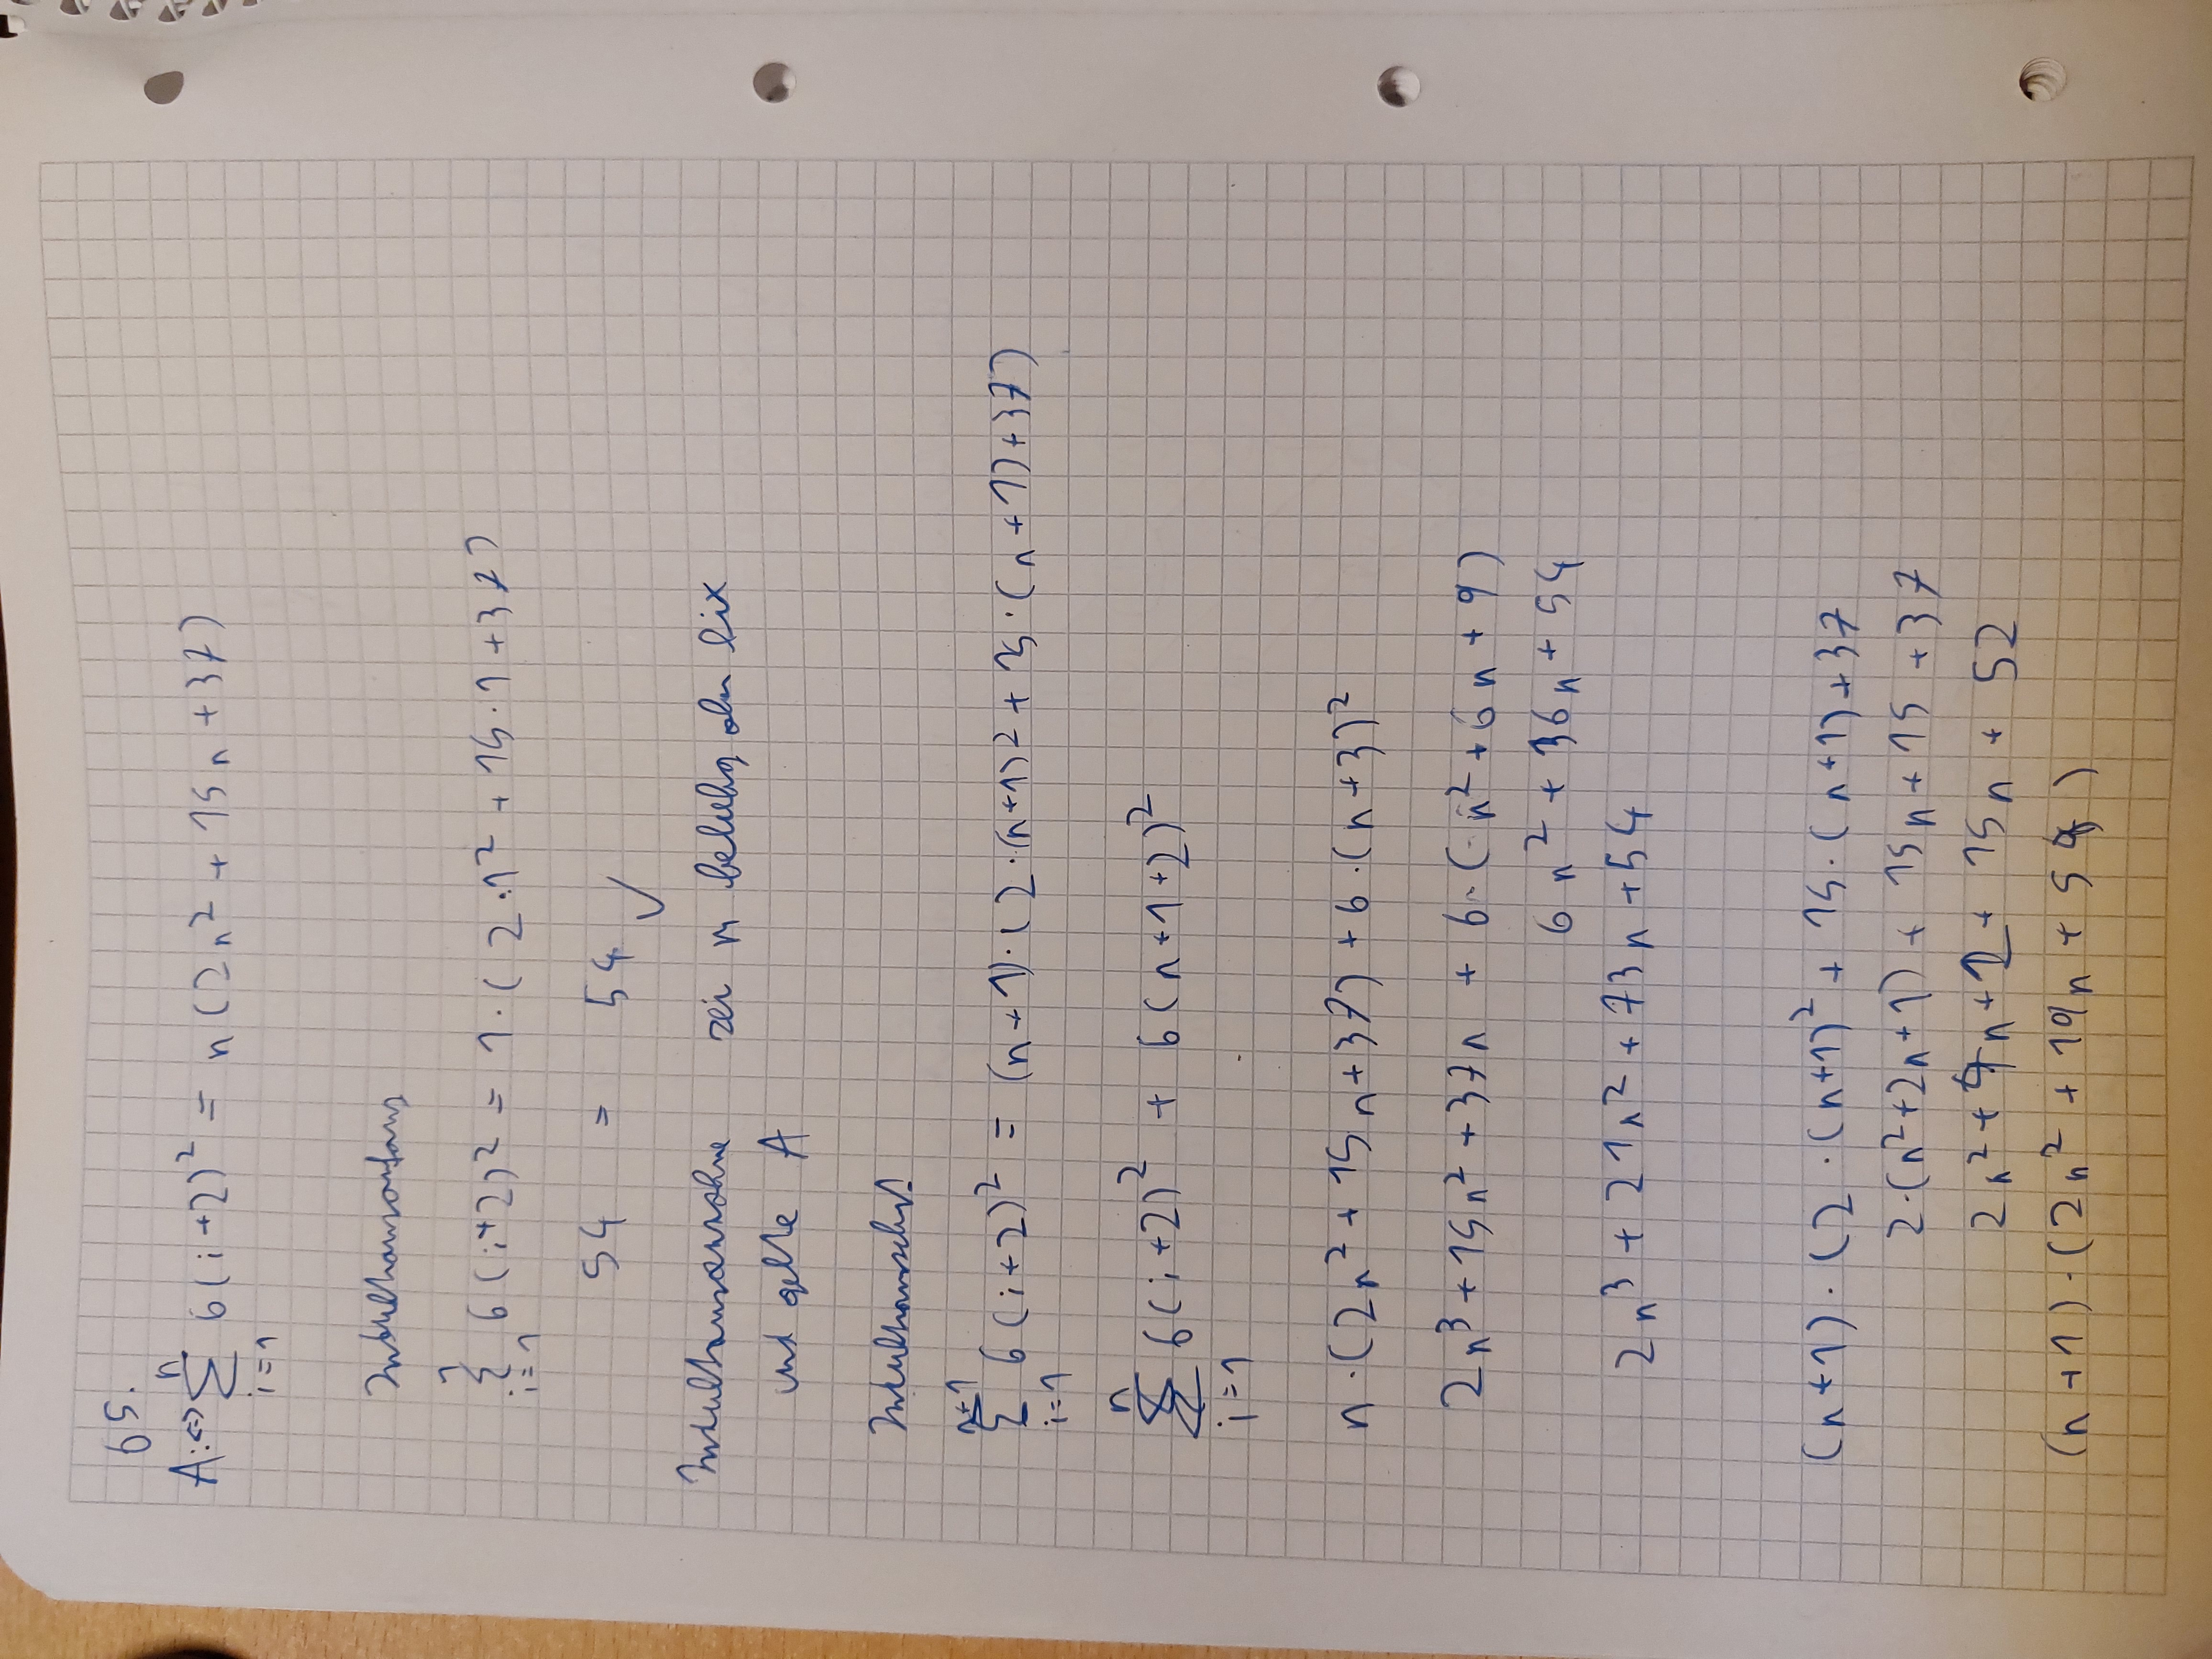 65.
A:⇔ \sum_{i=1}^{n} 6(i+2)² = n(2n² + 15n + 37)
Induktionsanfang
\sum_{i=1}^{1} 6(i+2)² = 1·(2·1² + 15·1 + 37)
54 = 54 ✓
Induktionsannahme sei n beliebig aber fix
und gelte A
Induktionsschritt
\sum_{i=1}^{n+1} 6(i+2)² = (n+1)·(2·(n+1)² + 15·(n+1)+37)
\sum_{i=1}^{n} 6(i+2)² + 6(n+1+2)²
n·(2n² + 15n+37) + 6·(n+3)²
2n³ + 15n² + 37n + 6·(n² + 6n + 9)
6n² + 36n + 54
2n³ + 21n² + 73n + 54
(n+1)·(2·(n+1)² + 15·(n+1)+37
2·(n²+2n+1) + 15n + 15 + 37
2n² + 4n + 2 + 15n + 52
(n+1)·(2n² + 19n + 54)